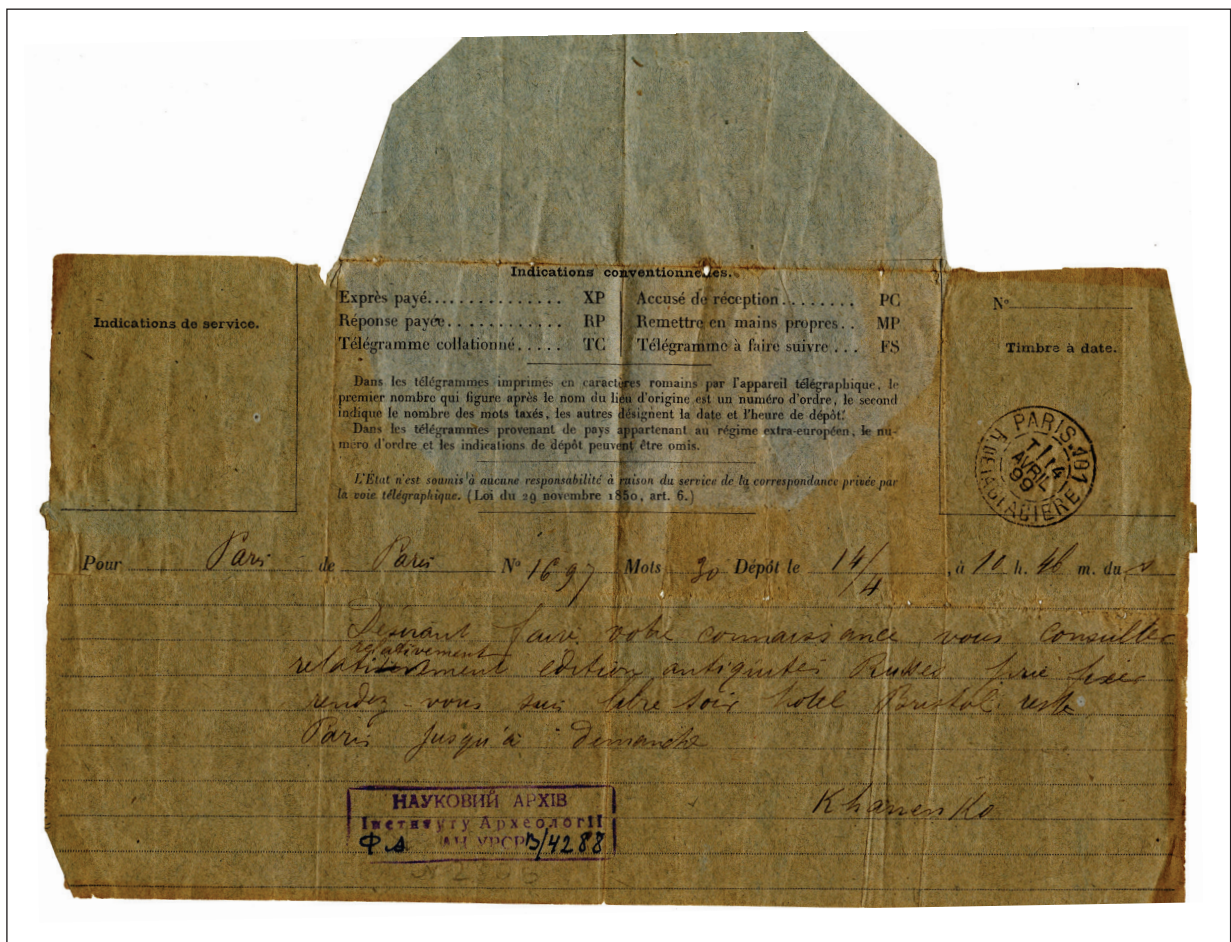 Indications de service.
Indications conventionnelles.
Exprès payé............... XP
Réponse payée............ RP
Télégramme collationné..... TC
Accusé de réception........ PC
Remettre en mains propres.. MP
Télégramme à faire suivre... FS
Dans les télégrammes imprimés en caractères romains par l'appareil télégraphique, le
premier nombre qui figure après le nom du lieu d'origine est un numéro d'ordre, le second
indique le nombre des mots taxés, les autres désignent la date et l'heure de dépôt.
Dans les télégrammes provenant de pays appartenant au régime extra-européen, le nu-
méro d'ordre et les indications de dépôt peuvent être omis.
L'État n'est soumis à aucune responsabilité à raison du service de la correspondance privée par
la voie télégraphique. (Loi du 29 novembre 1850, art. 6.)
N°
Timbre à date.
PARIS.101
14
AVRIL
99
GLACIERE
Pour Paris de Paris N° 1697 Mots 30 Dépôt le 14/4, à 10 h. 46 m. du s
Désirant faire votre connaissance vous consulter
relativement
relativement edition antiquités Russes prie fixer
rendez-vous suis libre soir hotel Bristol reste
Paris jusqu'à demanche
Khanenko
НАУКОВИЙ АРХІВ
Інституту Археології
АН УРСР
В/4288